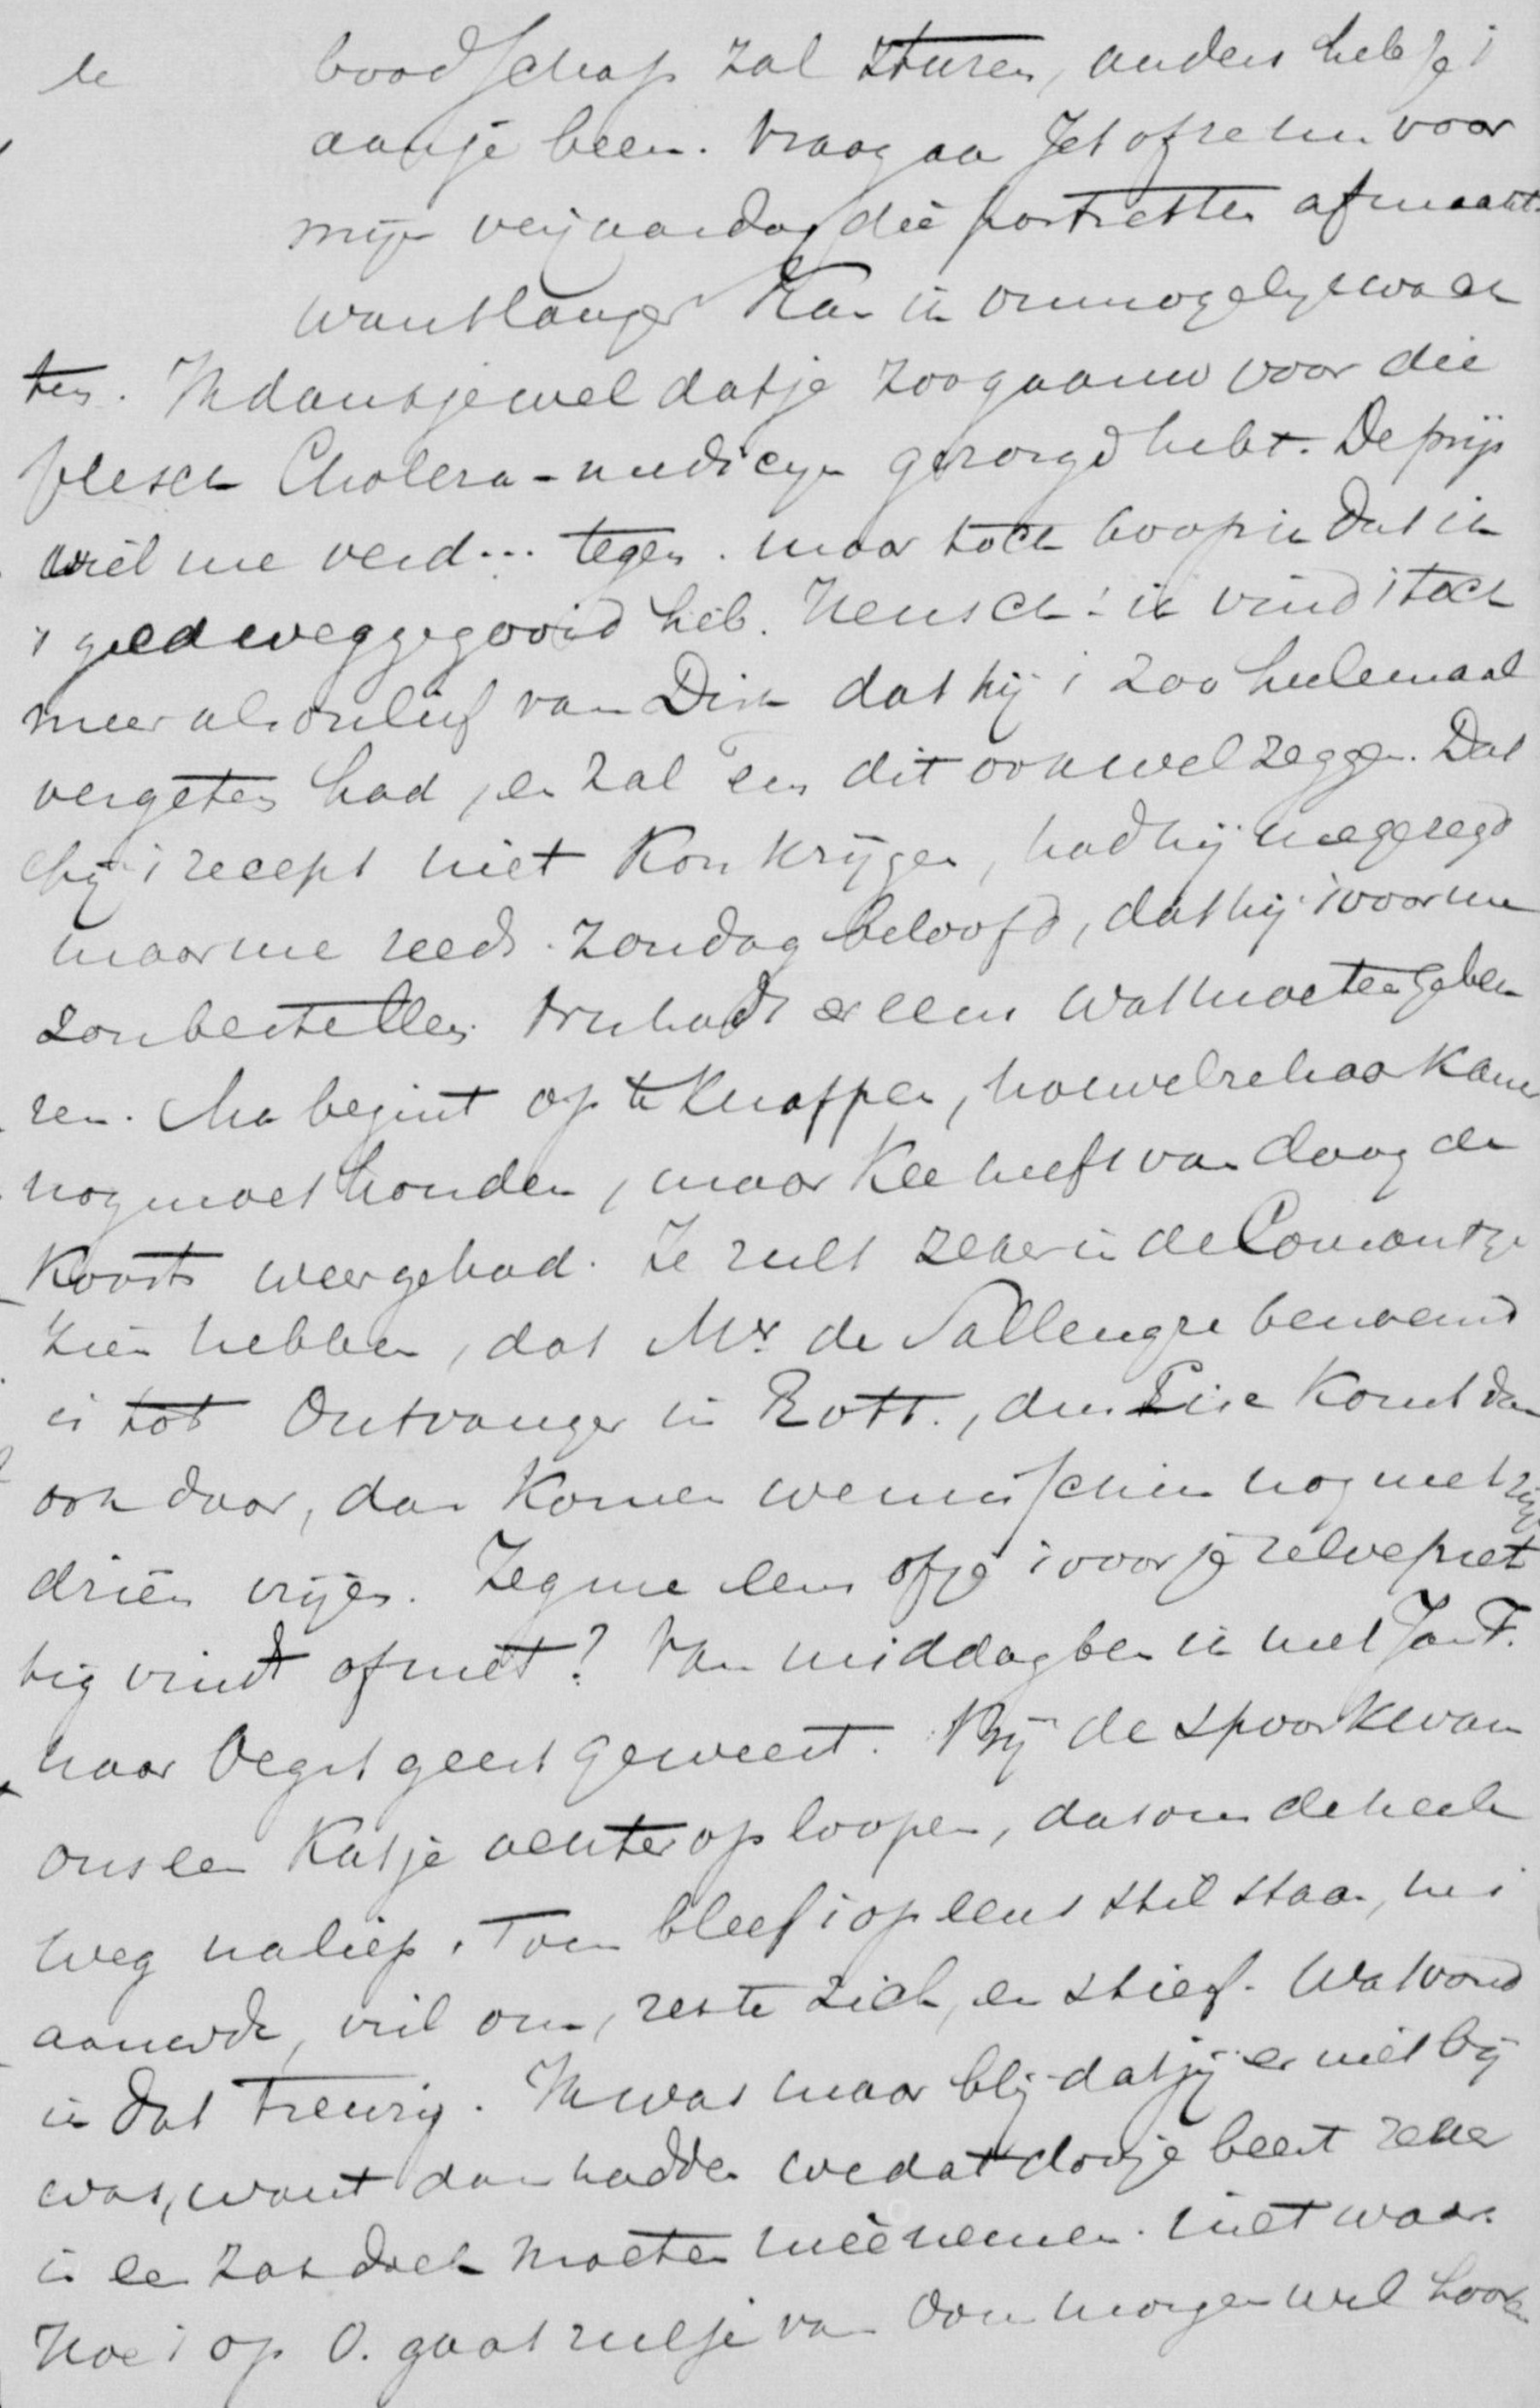 boodschap zal sturen, anders heb je 't
aan je been. Vraag aan Jet of ze hem voor
mijn verjaardag die portretten afmaakt
want langer kan ik onmogelijk wach
ten. Ik dank je wel dat je zoo gauw voor die
flesch Cholera-medicijn gezorgd hebt. De prijs
viel me verd... tegen. maar toch hoop ik dat ik
't geld weggegooid heb. Heusch! ik vind 't toch
meer als onlief van Dirk dat hij 't zoo heelemaal
vergeten had, en zal em dit ook wel zeggen. Dat
hij 't recept niet kon krijgen, had hij me gezegd
maar me reeds Zondag beloofd, dat hij 't voor me
zou bestellen. Truhad's er eens wat moeten gebeu
ren. Ma begint op te knappen, hoewel ze haar kamer
nog moet houden, maar Kee heeft van daag de
koorts weer gehad. Je zult zeker in de Courant ge
zien hebben, dat Mr. de Sallengre benoemd
is tot Ontvanger in Rott., dus Lise komt dan
ook daar, dan komen we misschien nog met zijn
drieën vrijen. Zeg me eens of je 't voor je zelve pret
tig vindt of niet? Van middag ben ik met Jan F.
naar Oegstgeest geweest. Bij de spoor kwam
ons een katje achterop loopen, dat ons de heele
weg naliep. Toen bleef 't opeens stil staan, mi
aauwde, viel om, rekte zich, en stierf. Wat vond
ik dat treurig. Ik was maar blij dat jij er niet bij
was, want dan hadden we dat dooje beest zeker
in een zakdoek moeten meênemen. niet waar.
Hoe 't op O. gaat zul je van Oom morgen wel hooren